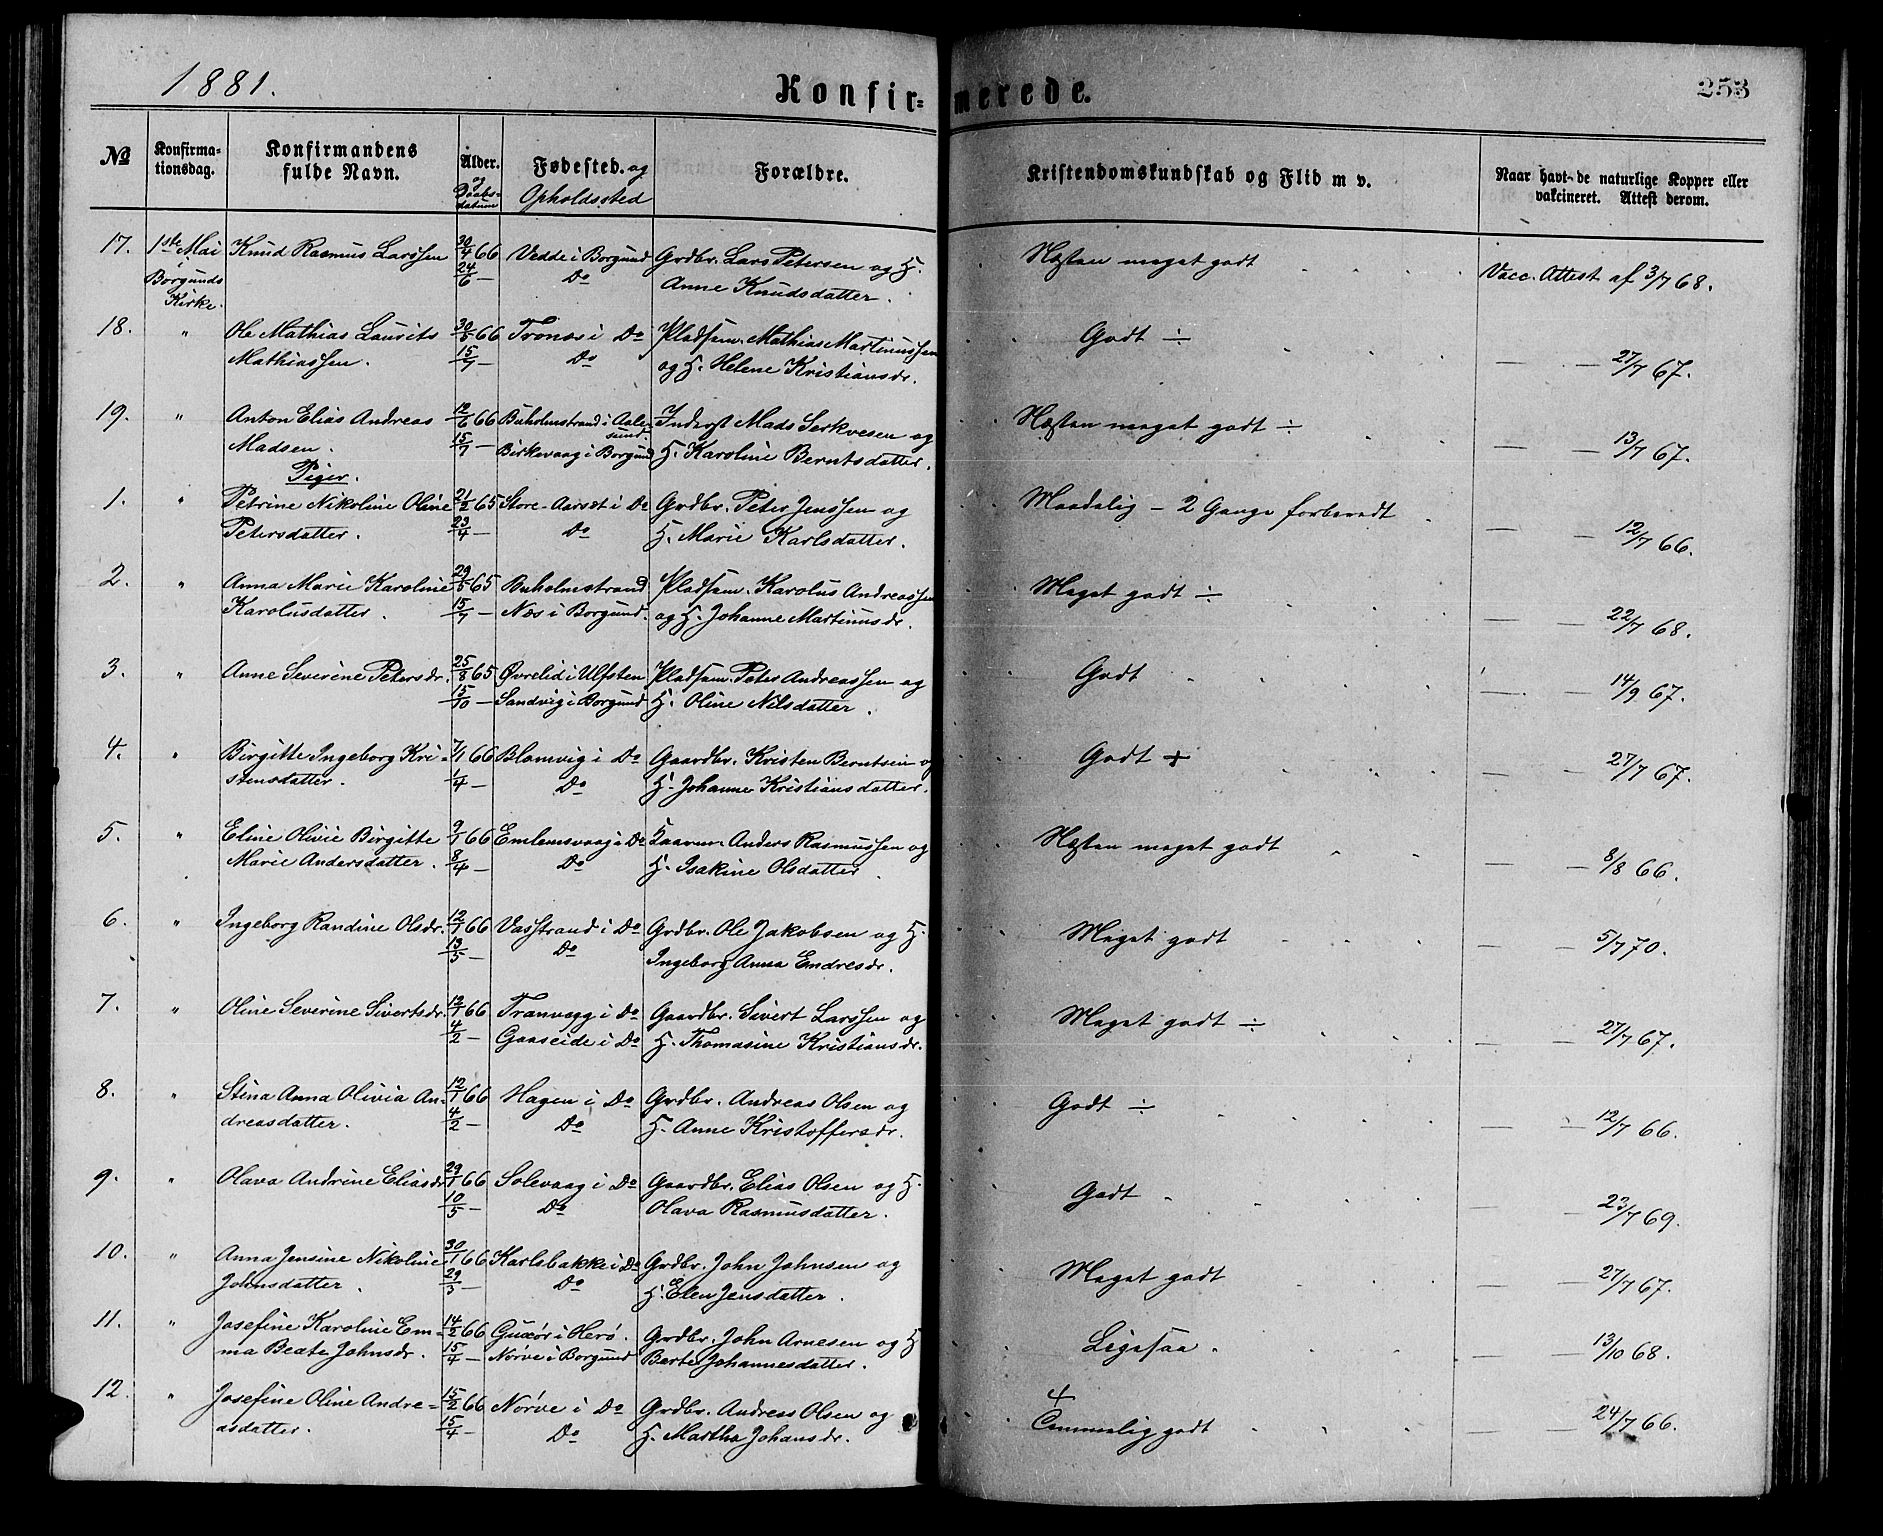 1881.
Konfir=merede.
253
No
Konfirmationsdag.
Konfirmandens fulde Navn.
Alder. og Daabsdatum
Fødested. og Opholdssted
Forældre.
Kristendomskundskab og Flid m v.
Naar havt de naturlige Kopper eller vakcineret. Attest derom.
17. 1ste Mai Knud Rasmus Larssen 30/4 66 Vedde i Borgund Grdbr. Lars Petersen og H. Næsten meget godt Vacc. Attest af 3/7 68.
Borgunds Kirke. 24/6 — Do Anne Knudsdatter.
18. " Ole Mathias Laurits 30/5 66 Tronæs i Do Pladsm. Mathias Martinussen Godt ÷ — — 27/7 67.
Mathiassen. 15/7 — Do og H. Helene Kristiansdr.
19. " Anton Elias Andreas 12/6 66 Buholmstrand i Aalesund. Inderst Mads Serkvesen og Næsten meget godt ÷ — — 13/7 67.
Madsen. 15/7 — Birkevaag i Borgund H. Karoline Berntsdatter.
Piger.
1. " Petrine Nikoline Oline 21/2 65 Store-Aarset i Do Grdbr. Peter Jenssen og Maadelig – 2 Gange forberedt — — 12/7 66.
Petersdatter. 23/4 — Do H. Marie Karlsdatter.
2. " Anna Marie Karoline 29/5 65 Buholmstrand Pladsm. Karolus Andreassen Meget godt ÷ — — 22/7 68.
Karolusdatter. 15/7 — Næs i Borgund. og H. Johanne Martinusdr.
3. " Anne Severine Petersdr. 25/8 65 Øvrelid i Ulfsten Pladsm. Peter Andreassen og Godt — — 14/9 67.
15/10 — Sandvig i Borgund H. Oline Nilsdatter.
4. " Birgitte Ingeborg Kri- 7/1 66 Blomvig i Do Gaardbr. Kristen Berntsen og Godt + — — 27/7 67.
stensdatter. 1/4 — Do H. Johanne Kristiansdatter.
5. " Eline Olivie Birgitte 9/1 66 Emlemsvaag i Do Kaarm. Anders Rasmussen og Næsten meget godt — — 8/8 66.
Marie Andersdatter. 8/4 — Do H. Isakine Olsdatter
6. " Ingeborg Randine Olsdr. 12/1 66 Vasstrand i Do Grdbr. Ole Jakobsen og H. Meget godt — — 5/7 70.
13/5 — Do Ingeborg Anna Endresdr.
7. " Oline Severine Sivertsdr. 12/1 66 Tranvaag i Do Gaardbr. Sivert Larssen og Meget godt ÷ — — 27/7 67.
4/2 — Gaaseide i Do H. Thomasine Kristiansdr.
8. " Stina Anna Olivia An= 12/1 66 Hagen i Do Grdbr. Andreas Olsen og Godt ÷ — — 12/7 66.
dreasdatter. 4/2 — Do H. Anne Kristoffersdr.
9. " Olava Andrine Eliasdr 29/1 66 Solevaag i Do Gaardbr. Elias Olsen og H. Godt — — 23/7 69.
10/5 — Do Olava Rasmusdatter.
10. " Anna Jensine Nikoline 30/1 66 Karlsbakke i Do Grdbr. John Johnsen og Meget godt — — 27/7 67.
Johnsdatter. 29/3 — Do H. Elen Jensdatter.
11. " Josefine Karoline Em= 14/2 66 Gusør i Herø. Grdbr. John Arnesen og H Ligesaa — — 13/10 68.
ma Beate Johnsdr. 15/4 — Nørve i Borgund Berte Johannesdatter.
12. " Josefine Oline Andre= 15/2 66 Nørve i Do Grdbr. Andreas Olsen og + Temmelig godt — — 24/7 66.
asdatter. 15/4 — Do H. Martha Johansdr.